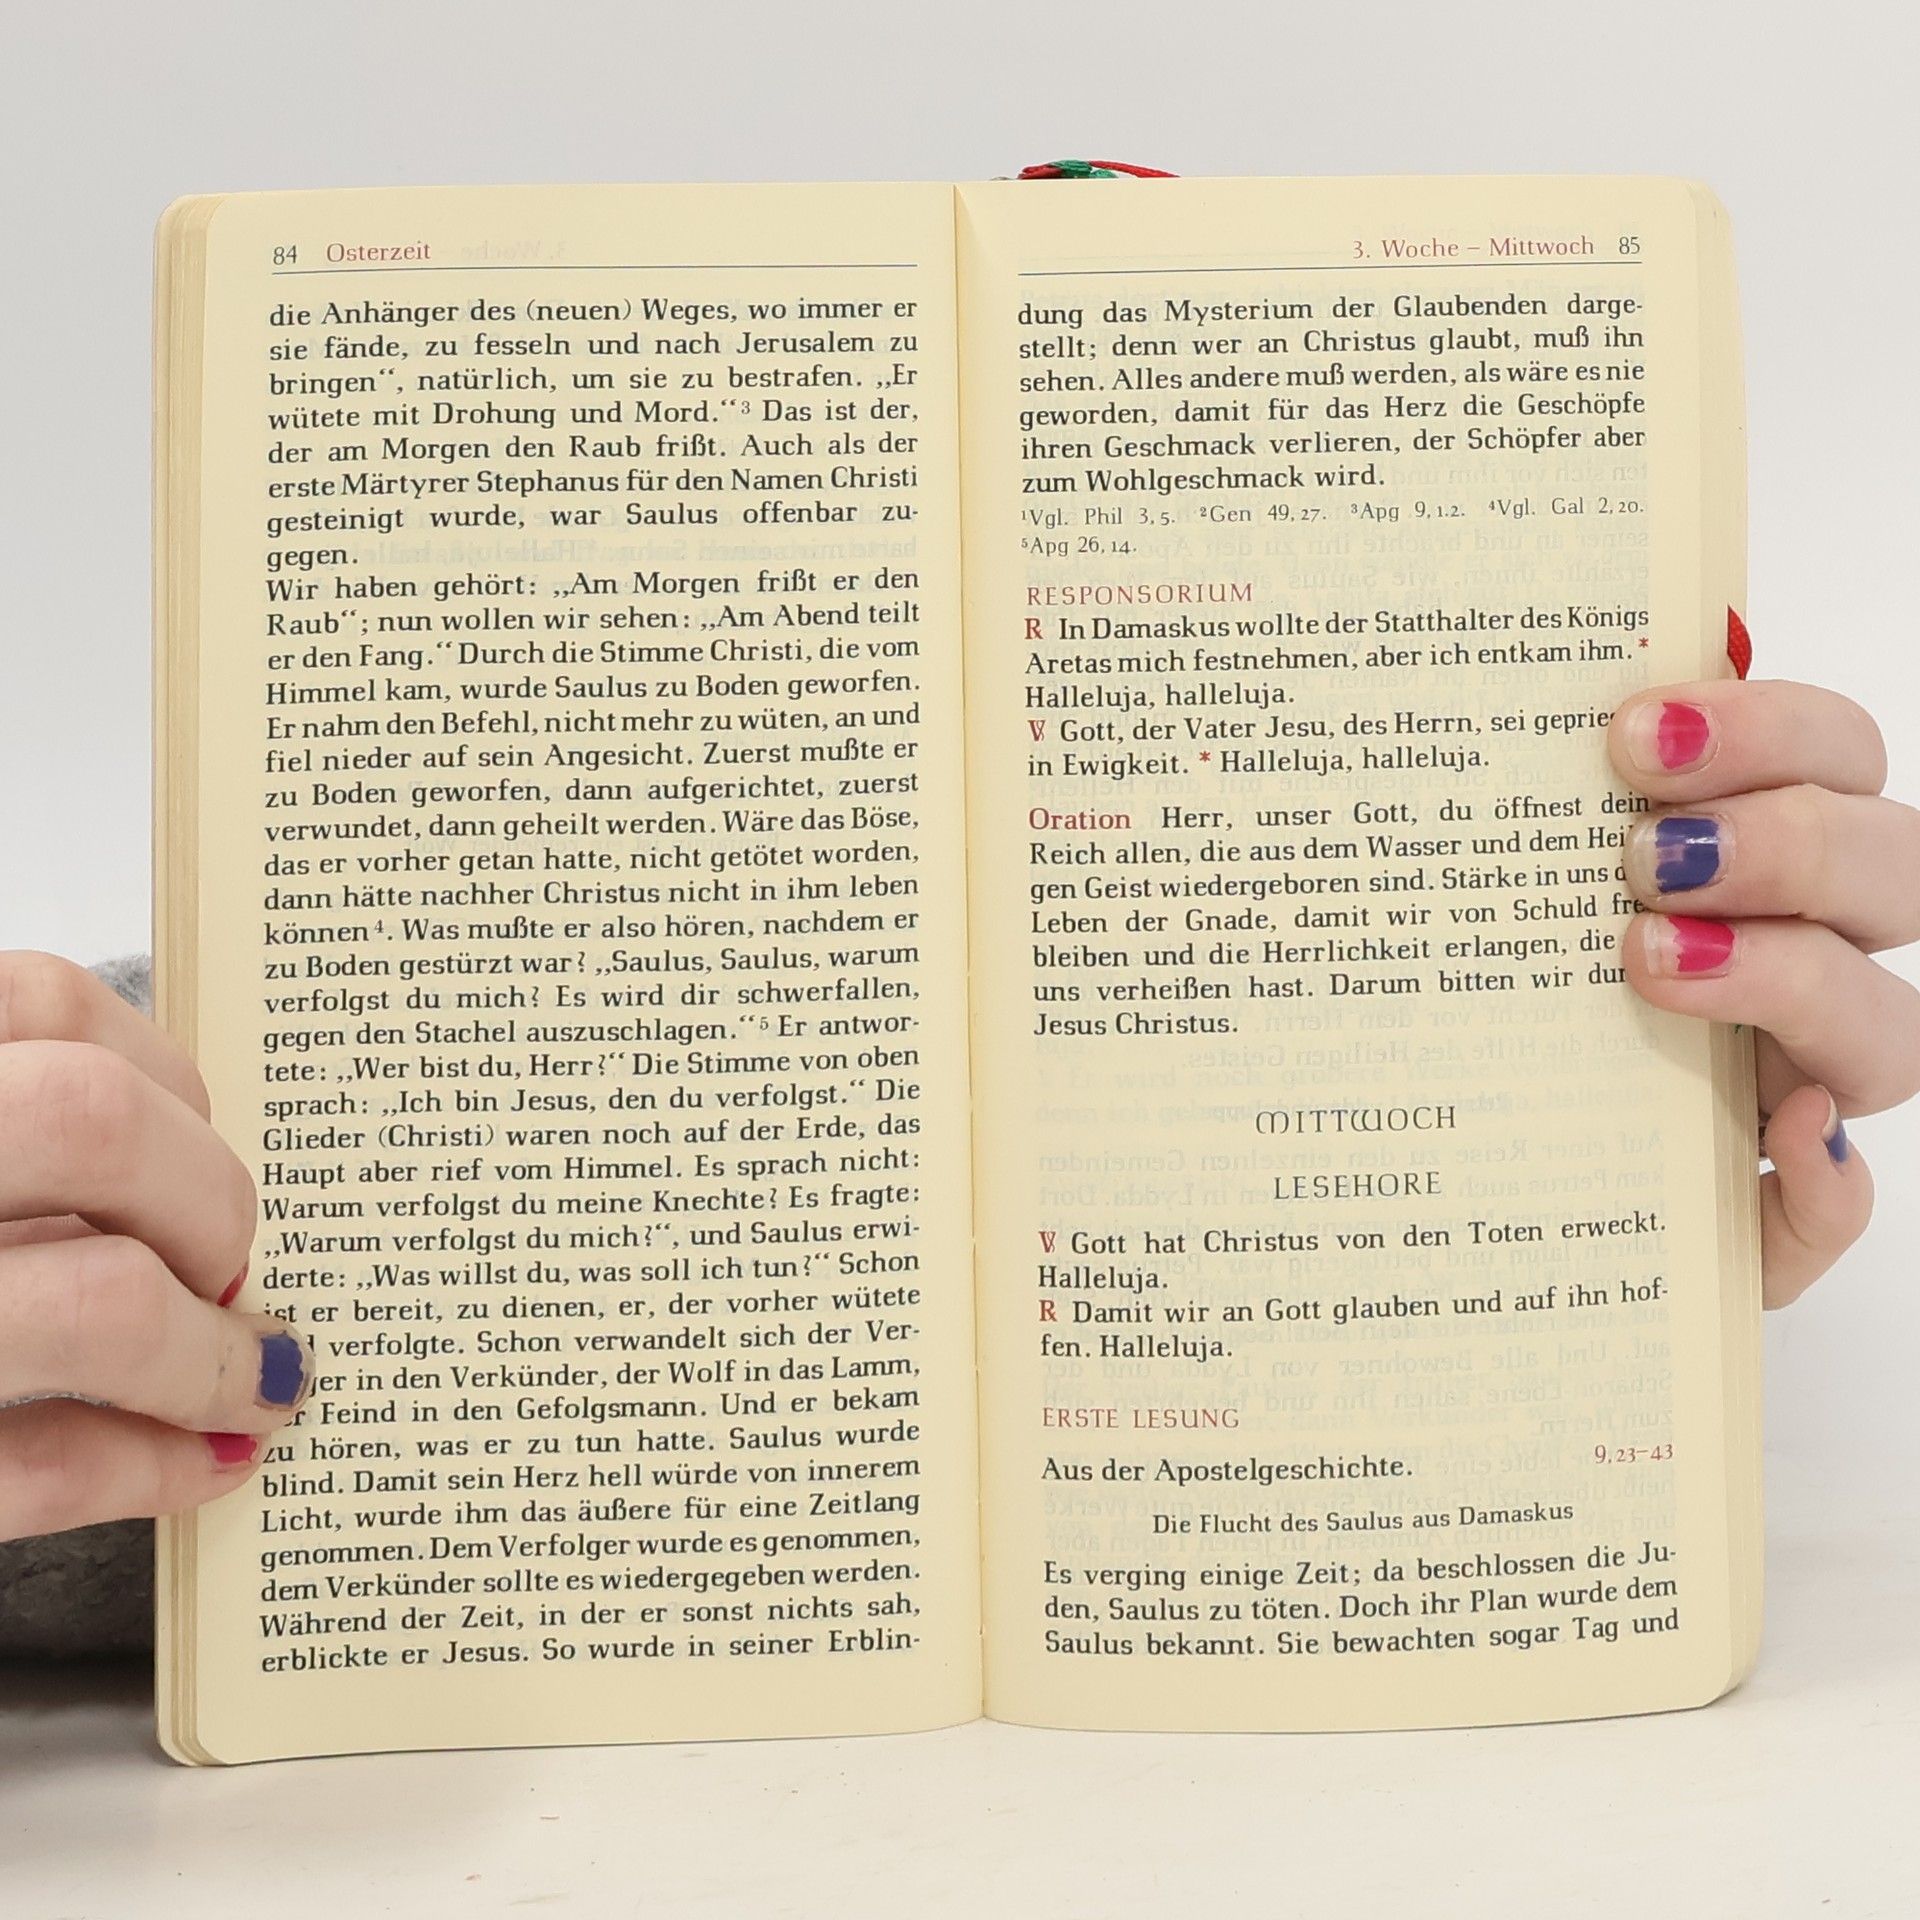 84 Osterzeit
die Anhänger des (neuen) Weges, wo immer er
sie fände, zu fesseln und nach Jerusalem zu
bringen“, natürlich, um sie zu bestrafen. „Er
wütete mit Drohung und Mord.“³ Das ist der,
der am Morgen den Raub frißt. Auch als der
erste Märtyrer Stephanus für den Namen Christi
gesteinigt wurde, war Saulus offenbar zu-
gegen.
Wir haben gehört: „Am Morgen frißt er den
Raub“; nun wollen wir sehen: „Am Abend teilt
er den Fang.“ Durch die Stimme Christi, die vom
Himmel kam, wurde Saulus zu Boden geworfen.
Er nahm den Befehl, nicht mehr zu wüten, an und
fiel nieder auf sein Angesicht. Zuerst mußte er
zu Boden geworfen, dann aufgerichtet, zuerst
verwundet, dann geheilt werden. Wäre das Böse,
das er vorher getan hatte, nicht getötet worden,
dann hätte nachher Christus nicht in ihm leben
können⁴. Was mußte er also hören, nachdem er
zu Boden gestürzt war? „Saulus, Saulus, warum
verfolgst du mich? Es wird dir schwerfallen,
gegen den Stachel auszuschlagen.“⁵ Er antwor-
tete: „Wer bist du, Herr?“ Die Stimme von oben
sprach: „Ich bin Jesus, den du verfolgst.“ Die
Glieder (Christi) waren noch auf der Erde, das
Haupt aber rief vom Himmel. Es sprach nicht:
Warum verfolgst du meine Knechte? Es fragte:
„Warum verfolgst du mich?“, und Saulus erwi-
derte: „Was willst du, was soll ich tun?“ Schon
ist er bereit, zu dienen, er, der vorher wütete
verfolgte. Schon verwandelt sich der Ver-
in den Verkünder, der Wolf in das Lamm,
Feind in den Gefolgsmann. Und er bekam
zu hören, was er zu tun hatte. Saulus wurde
blind. Damit sein Herz hell würde von innerem
Licht, wurde ihm das äußere für eine Zeitlang
genommen. Dem Verfolger wurde es genommen,
dem Verkünder sollte es wiedergegeben werden.
Während der Zeit, in der er sonst nichts sah,
erblickte er Jesus. So wurde in seiner Erblin-
3. Woche – Mittwoch 85
dung das Mysterium der Glaubenden darge-
stellt; denn wer an Christus glaubt, muß ihn
sehen. Alles andere muß werden, als wäre es nie
geworden, damit für das Herz die Geschöpfe
ihren Geschmack verlieren, der Schöpfer aber
zum Wohlgeschmack wird.
¹Vgl. Phil 3,5. ²Gen 49,27. ³Apg 9,1.2. ⁴Vgl. Gal 2,20.
⁵Apg 26,14.
RESPONSORIUM
R In Damaskus wollte der Statthalter des Königs
Aretas mich festnehmen, aber ich entkam ihm. *
Halleluja, halleluja.
V Gott, der Vater Jesu, des Herrn, sei
in Ewigkeit. * Halleluja, halleluja.
Oration Herr, unser Gott, du öffnest dein
Reich allen, die aus dem Wasser und dem
gen Geist wiedergeboren sind. Stärke in uns
Leben der Gnade, damit wir von Schuld
bleiben und die Herrlichkeit erlangen, die
uns verheißen hast. Darum bitten wir
Jesus Christus.
MITTWOCH
LESEHORE
V Gott hat Christus von den Toten erweckt.
Halleluja.
R Damit wir an Gott glauben und auf ihn hof-
fen. Halleluja.
ERSTE LESUNG
Aus der Apostelgeschichte. 9,23–43
Die Flucht des Saulus aus Damaskus
Es verging einige Zeit; da beschlossen die Ju-
den, Saulus zu töten. Doch ihr Plan wurde dem
Saulus bekannt. Sie bewachten sogar Tag und